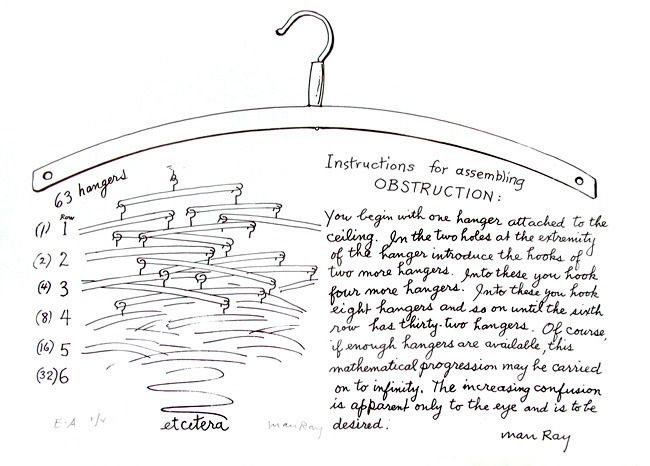 63 hangers
Row
(1) 1
(2) 2
(4) 3
(8) 4
(16) 5
(32) 6
etcetera
E·A 1/4
man Ray
Instructions for assembling
OBSTRUCTION:
You begin with one hanger attached to the
ceiling. In the two holes at the extremity
of the hanger introduce the hooks of
two more hangers. Into these you hook
four more hangers. Into these you hook
eight hangers and so on until the sixth
row has thirty-two hangers. Of course,
if enough hangers are available, this
mathematical progression may be carried
on to infinity. The increasing confusion
is apparent only to the eye and is to be
desired.
man Ray